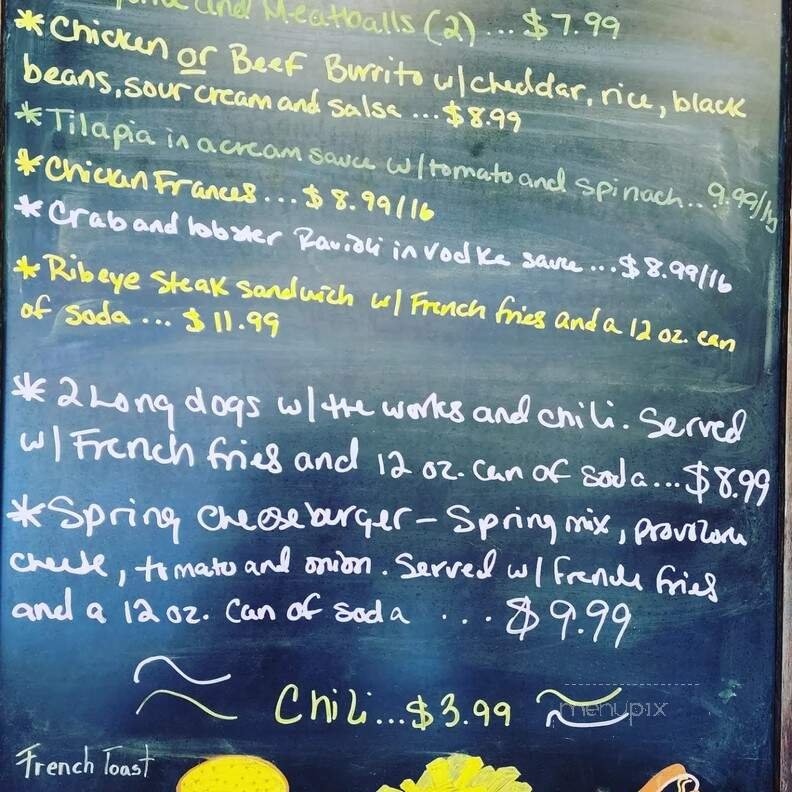 and Meatballs (2)... $7.99
*Chicken or Beef Burrito w/cheddar, rice, black
beans, sour cream and salsa ... $8.99
*Tilapia in a cream sauce w/tomato and spinach... 9.99/lb
*Chicken Frances... $8.99/lb
*Crab and lobster Ravioli in vodka sauce ... $8.99/lb
*Ribeye Steak sandwich w/ French fries and a 12 oz. can
of soda ... $11.99
*2 Long dogs w/ the works and chili. Served
w/ French fries and 12 oz. can of soda... $8.99
*Spring cheeseburger - Spring mix, provolone
cheese, tomato and onion. Served w/ french fries
and a 12 oz. can of soda ... $9.99
Chili... $3.99
menupix
French Toast